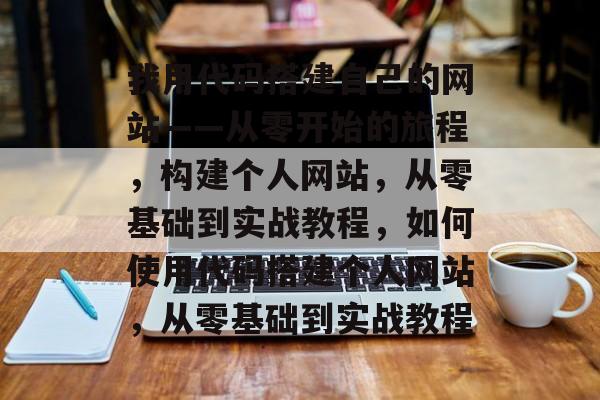 我用代码搭建自己的网
站——从零开始的旅程
，构建个人网站，从零
基础到实战教程，如何
使用代码搭建个人网站
，从零基础到实战教程